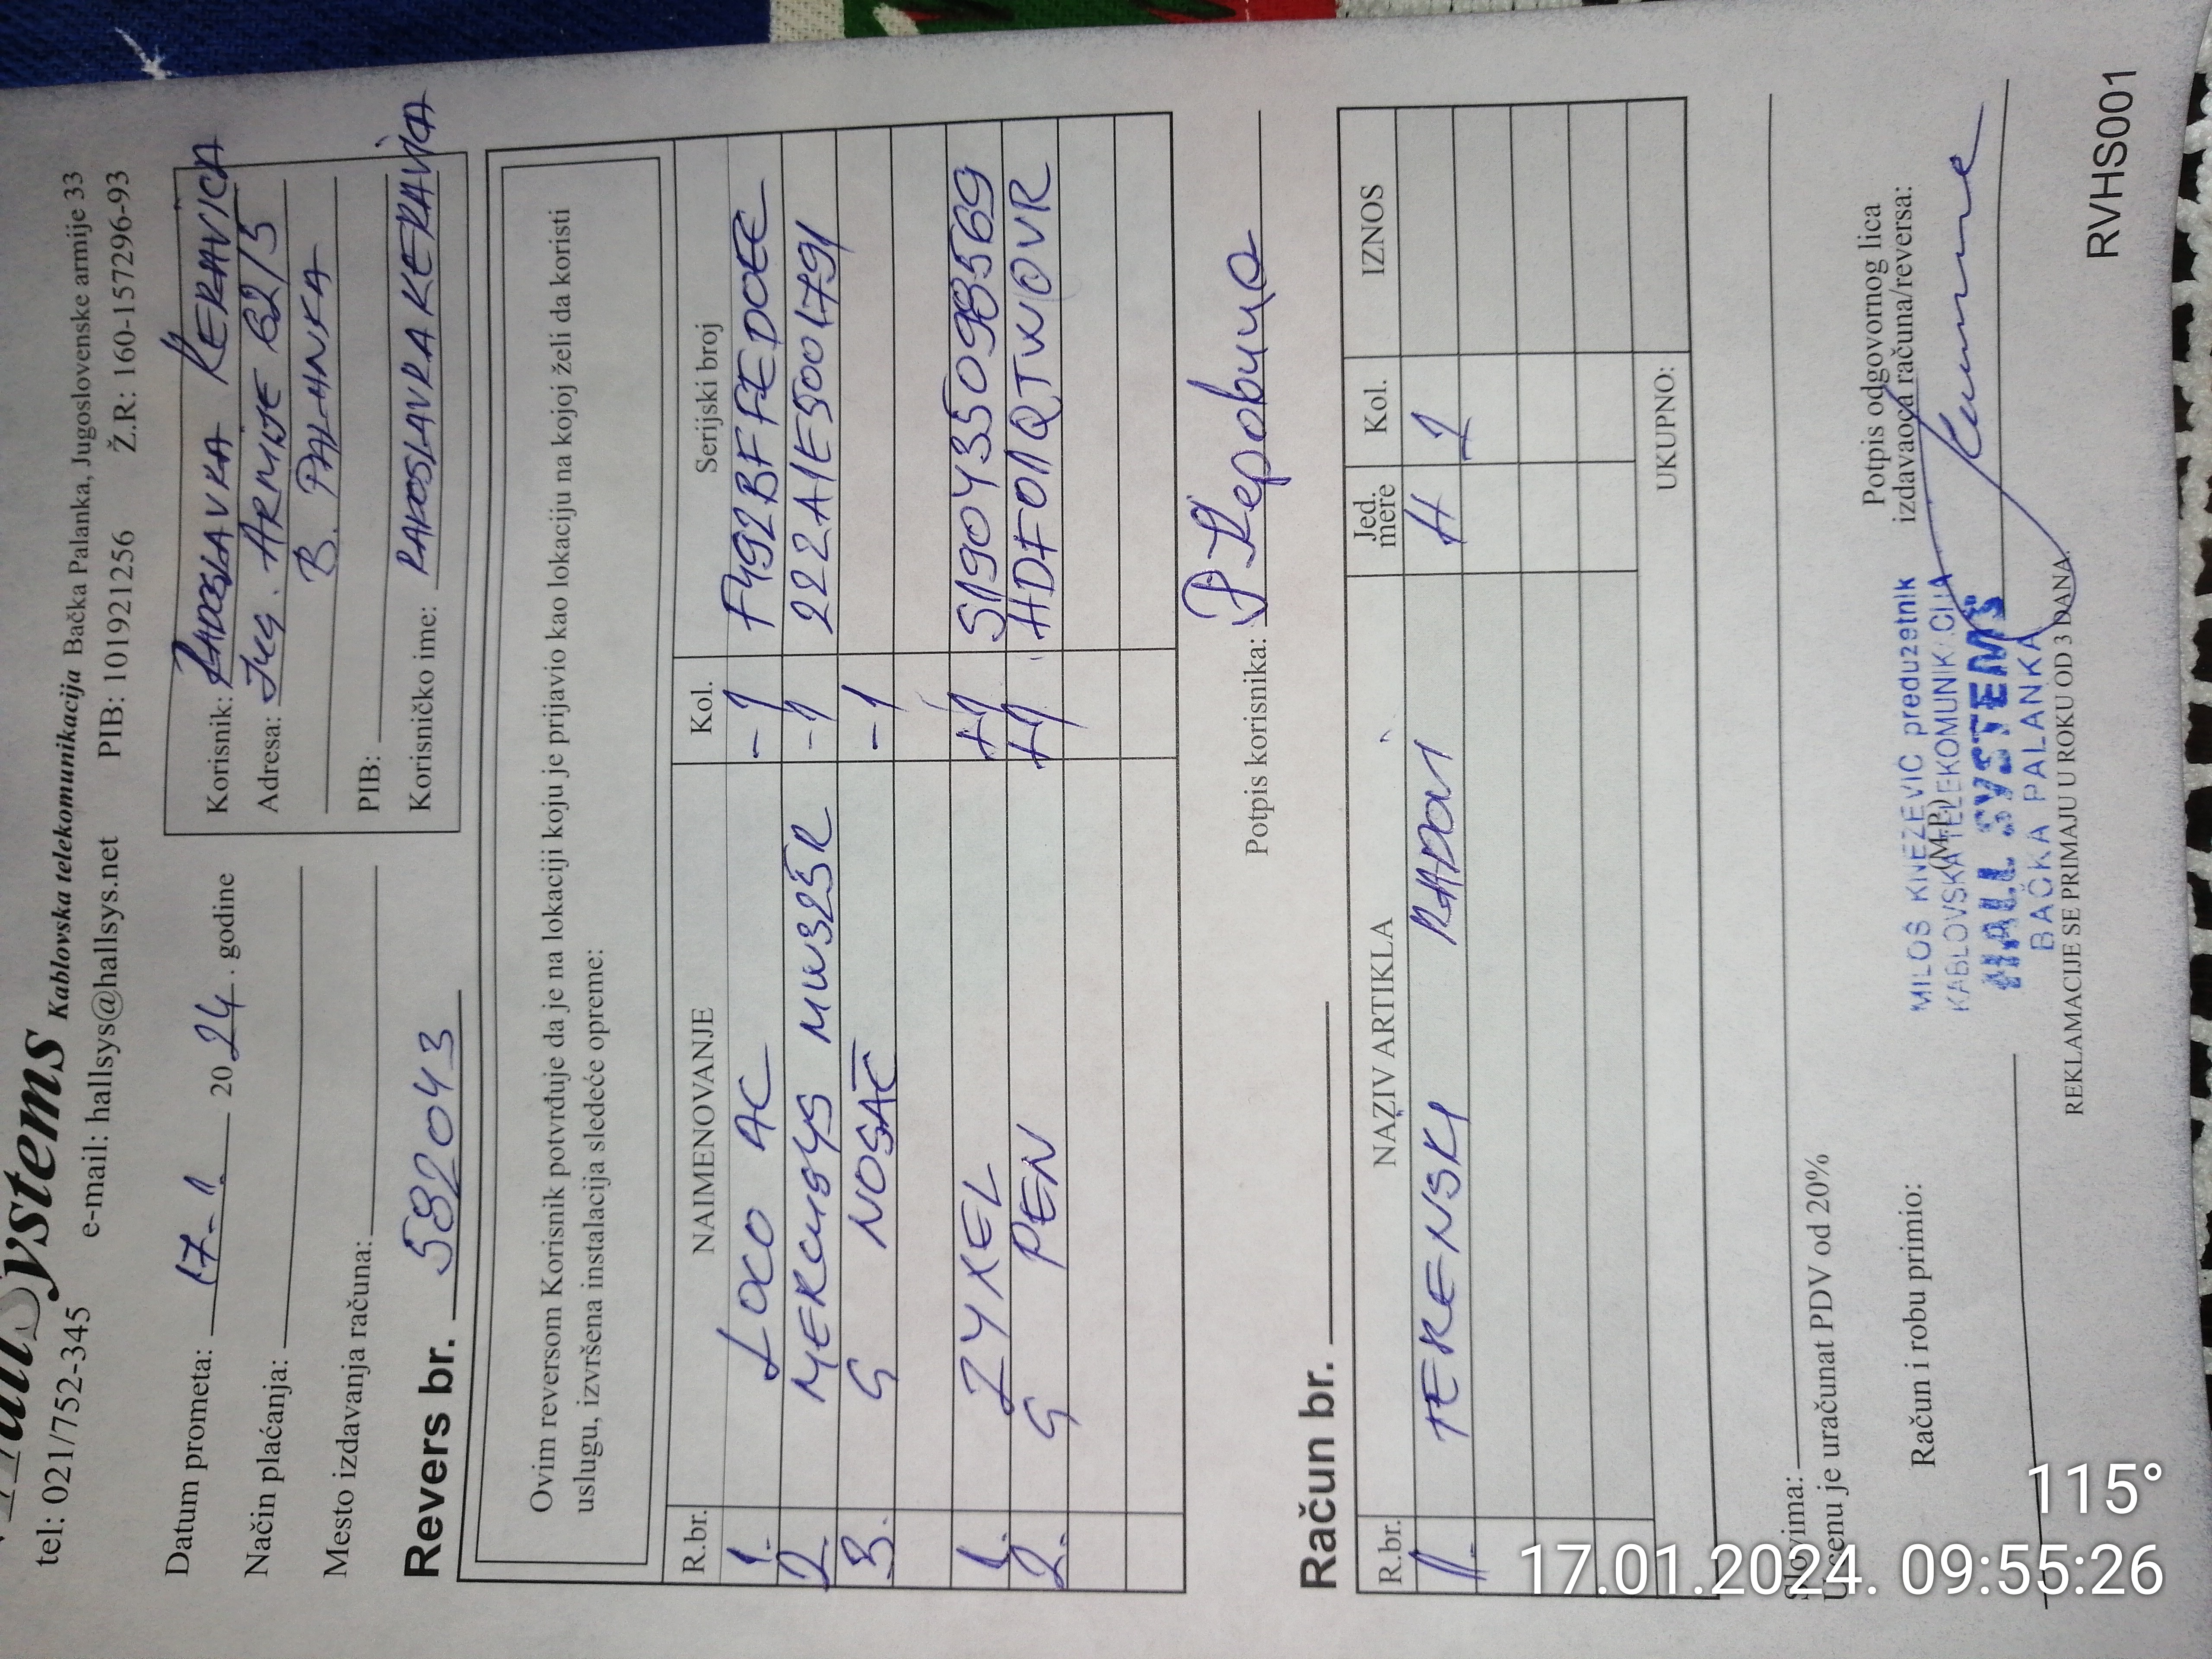 Hall Systems Kablovska telekomunikacija Bačka Palanka, Jugoslovenske armije 33
tel: 021/752-345 e-mail: hallsys@hallsys.net PIB: 101921256 Ž.R: 160-157296-93
Datum prometa: 17-1. 2024. godine
Način plaćanja:
Mesto izdavanja računa:
Korisnik: RADOSLAVKA KERAVICA
Adresa: JUG. ARMIJE 62/5
B. PALANKA
PIB:
Korisničko ime: RADOSLAVKA KERAVICA
Revers br. 592043
Ovim reversom Korisnik potvrđuje da je na lokaciji koju je prijavio kao lokaciju na kojoj želi da koristi
uslugu, izvršena instalacija sledeće opreme:
R.br. NAIMENOVANJE Kol. Serijski broj
1. LOCO AC -1 F492BFFEDOEE
2. MERCUSYS MW325R -1 222A1E5001791
3. G NOSAČ -1
1. ZYXEL +1 S190435098569
2. G PEN +1 HDF011QTWOVR
Potpis korisnika: Р Керавица
Račun br.
R.br. NAZIV ARTIKLA Jed. mere Kol. IZNOS
1. TERENSKI RAD 01 H 1
UKUPNO:
Slovima:
U cenu je uračunat PDV od 20%
Račun i robu primio:
(M.P.)
Potpis odgovornog lica
izdavaoca računa/reversa:
MILOŠ KNEŽEVIĆ preduzetnik
KABLOVSKA TELEKOMUNIKACIJA
HALL SYSTEMS
BAČKA PALANKA
REKLAMACIJE SE PRIMAJU U ROKU OD 3 DANA.
RVHS001
115°
17.01.2024. 09:55:26